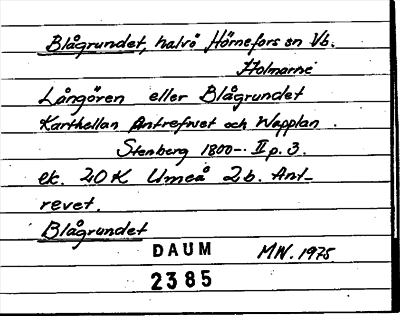 Blågrundet, halvö Hörnefors sn Vb.
Holmarne
Långören eller Blågrundet
Karthellan Antrefvet och Wepplan.
Stenberg 1800-. II p. 3.
ek. 20 K Umeå 2b. Ant-
revet.
Blågrundet
DAUM MW. 1975.
2385